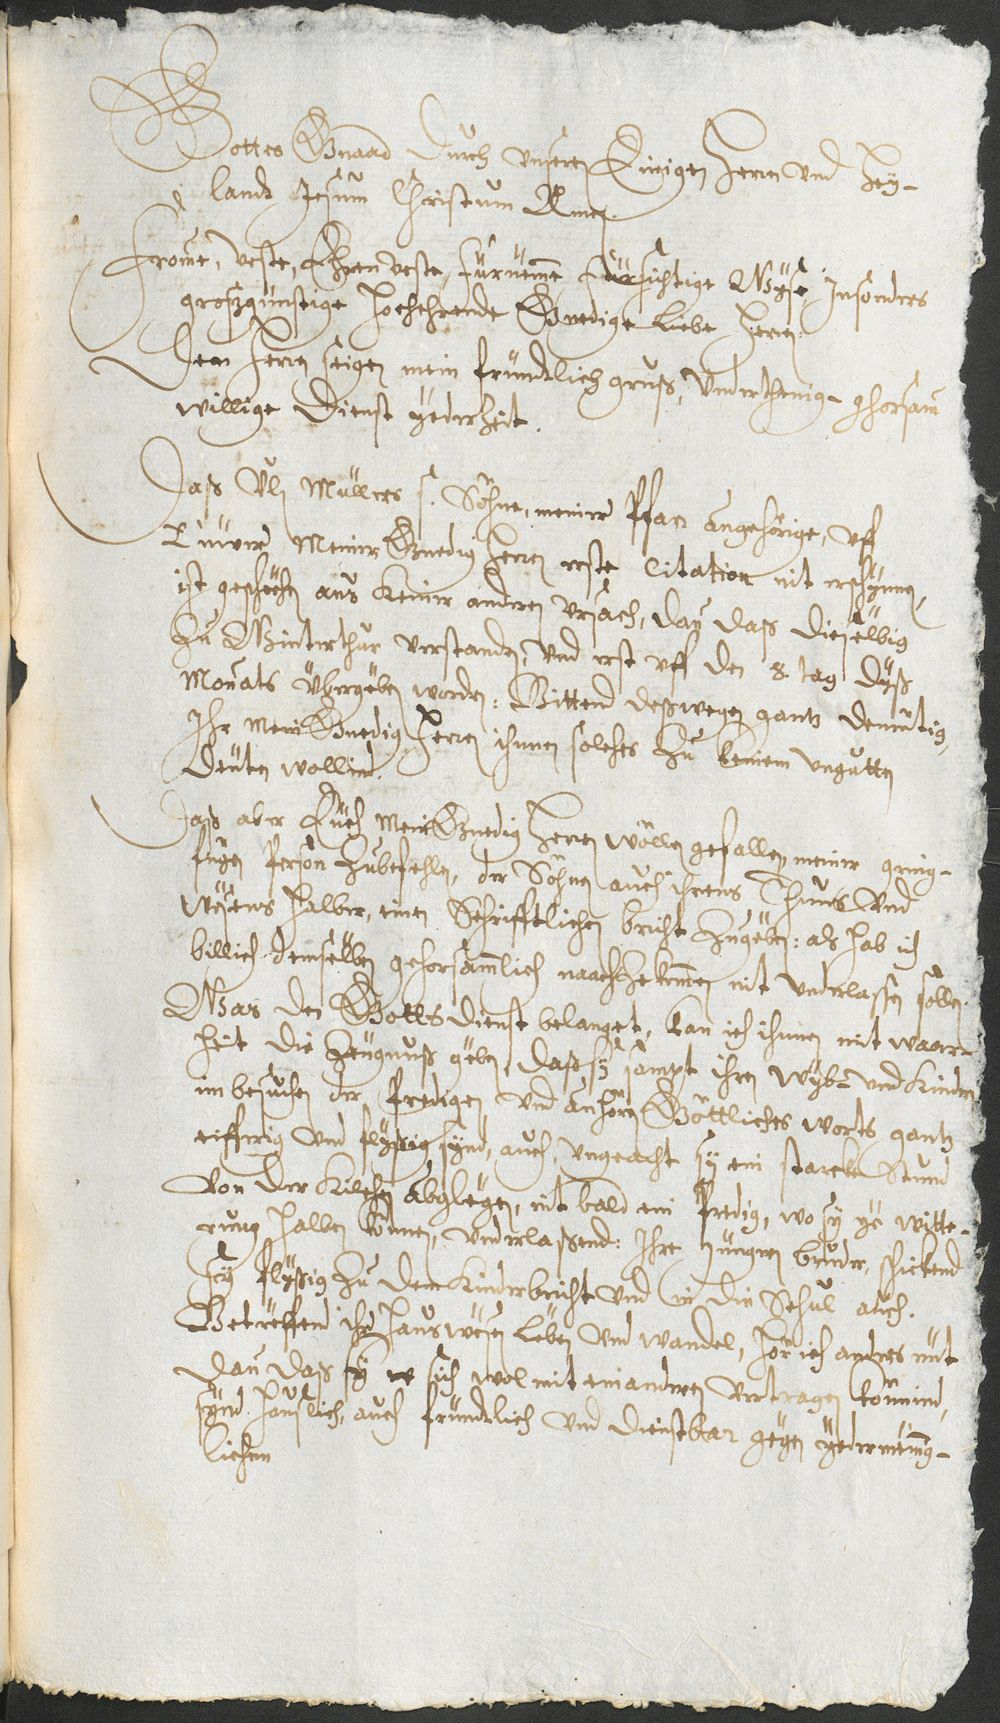 Gottes Gnaad durch unseren Einigen Herren und Hey-
landt Jesum Christum Amen.
Fromme, Veste, Ehrenveste, fürnemme Fürsichtige Wyse, Insonders
großgünstige hochehrende Gnedige liebe Herren.
Den Herren seigen mein fründtlich gruß, Underthenig- ghorsam
willige Dienst yederzeit.
Daß Uli Müllers s. Söhne, meiner Pfarr angehörige, uff
Eüwer Meiner Gnedig Herren erste Citation nit erschynnen,
ist geschehen aus keiner andren ursach, dan daß dieselbig
zu Winterthur verstanden, und erst uff den 8. tag dyß
Monats übergeben worden: Bittend deßwegen gantz demütig,
Ihr Mein Gnedig Herren ihnen solches zu keinem unguttem
deuten wollind.
Daß aber Euch Mein Gnedig Herren wöllen gefallen, meiner gring-
fügen Person zubefehlen, der Söhnen auch ihrens Thuns und
Wesens halber, einen Schrifftlichen bricht zugeben: als hab ich
billich demselben gehorsammlich naachzekommen nit underlassen sollen.
Was den Gottsdienst belanget, kan ich ihnen mit waar-
heit die Zeugnuß geben, daß sy sampt ihren Wyb- und Kinden
im besuchen der Predigen und anhören Göttliches Worts gantz
eifferig und flyssig sind, auch, ungeacht sy ein starcke Stund
von der Kilchen abglegen, nit bald ein Predig, wo sy ye witte-
rung halben können, underlassend: Ihre jüngren brüder, schickend
sy flyßig zu dem Kinderbricht und in die Schul auch.
Beträffend ihr Hauswesen Leben und wandel, hör ich anders nüt
dan daß sy sich wol mit einanderen vertragen könnind,
sind häuslich, auch fründtlich und dienstbar gegen yedermenig-
lichem